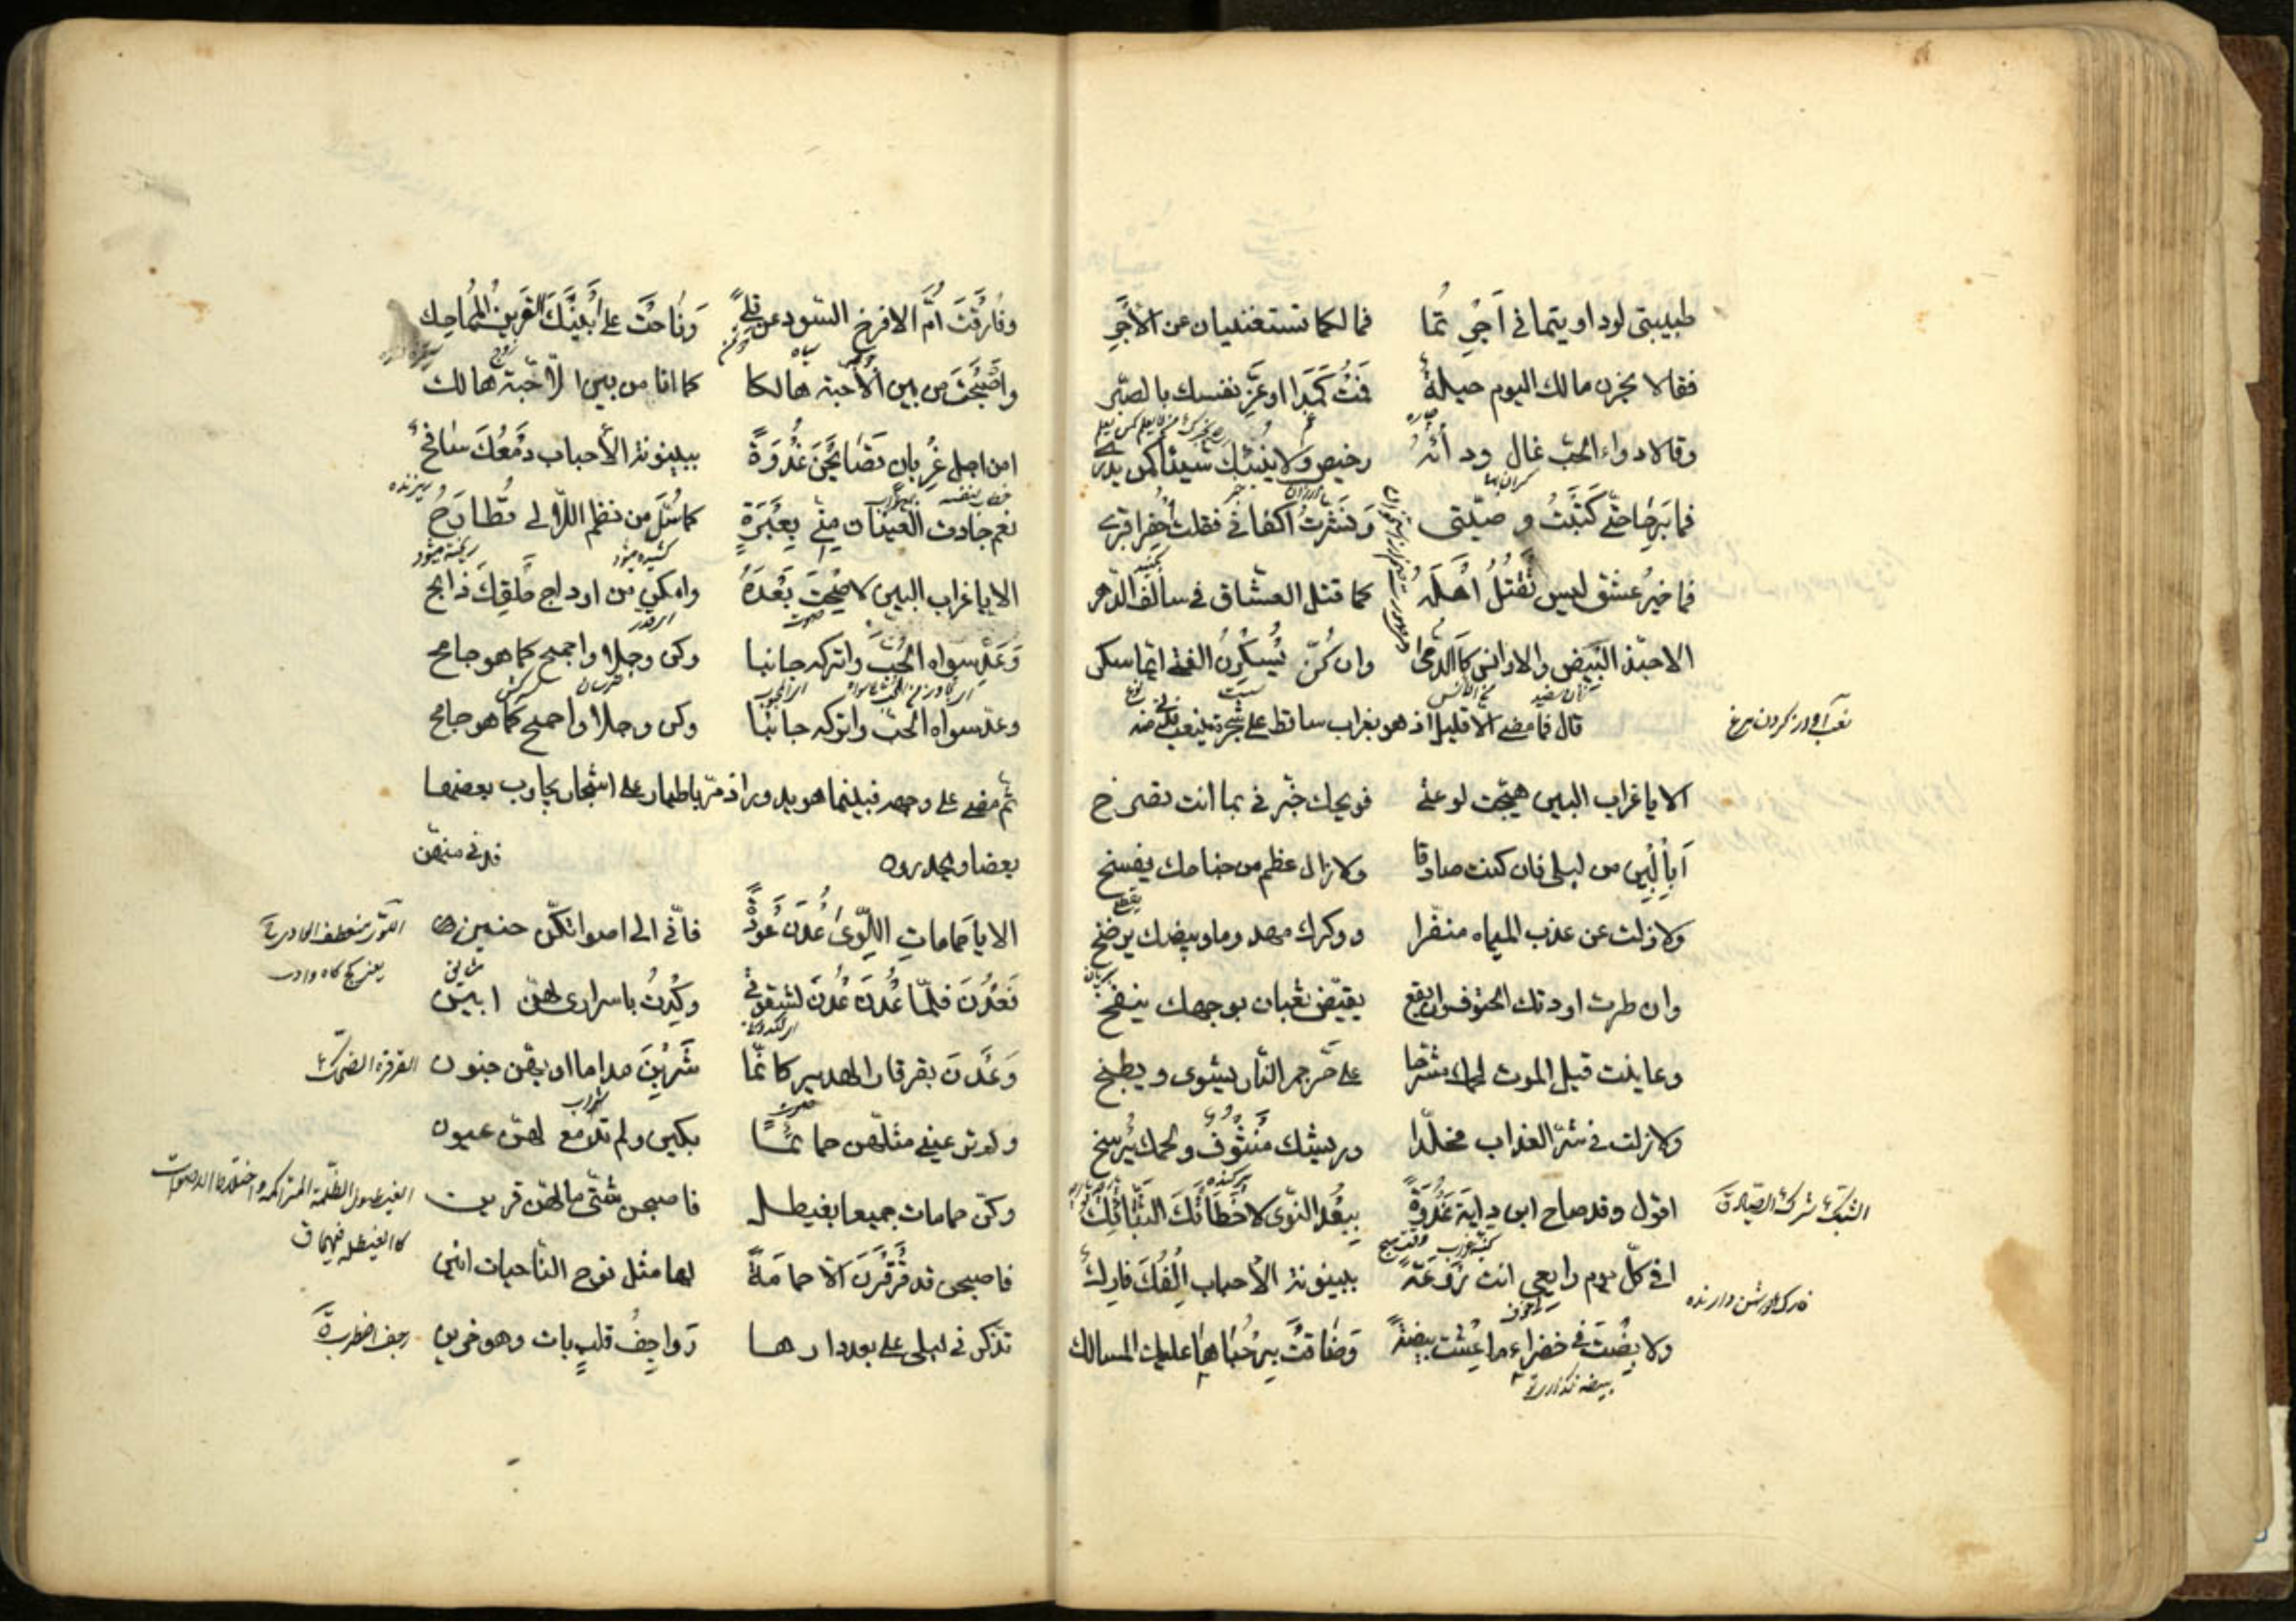 طبيبتي لو داويتماني اجرتما فما لكما تستغنيان عن الأجر
فقالا بحزن مالك اليوم حيلة فمت كمدا او عز نفسك بالصبر
چاره غم
وقالا دواء الحب غال ودائه رخيص ولا ينبئك شيئا كمن يدري
گران بها ارزان خبر
فما برحا حتى كتبت وصيتي ونشرت اكفاني فقلت احفرا قبري
فما خير عشق ليس تقتل اهله كما قتل العشاق في سالف الدهر
الا حبذا البيض والاوانس كالدمى وان كن يسكرن الفتى ايما سكر
قال فما مضى الا قليلا اذ هو بغراب ساقط على شجرة ينعب فدنى منه
نعب آواز کردن مرغ
الا يا غراب البين هيجت لوعتي فويحك خبرني بما انت تصرخ
أبالبين من ليلى فان كنت صادقا ولا زال عظم من جناحك يفسخ
ولا زلت عن عذب المياه منفرا ووكرك مهدوما وبيضك يرضخ
وان طرت اوردتك الحتوف وان تقع يقيض ثعبان بوجهك ينفخ
وعاينت قبل الموت لحمك مشرحا على حر جمر النار يشوى ويطبخ
ولا زلت في شر العذاب مخلدا وريشك منتوف ولحمك يشرخ
اقول وقد صاح ابن داية غدوة ببعد النوى لا اخطأتك الشبائك
الشبكة شركة الصياد
افي كل يوم رايعي انت روعة ببينونة الأحباب إلفك فارك
ولا بضت في خضراء ما عشت بيضة وضاقت برحباها عليك المسالك
بيضه نگذارى
وفارقت أم الافرخ السود عن قلى وناحت على أبينك القرين المماحك
سیاه
واصبحت من بين الأحبة هالكا كما انا من بين الأحبة هالك
امن اجل غربان تصايحن غدوة ببينونة الأحباب دمعك سافح
ريزنده
نعم جادت العينان مني بعبرة كما سل من نظم اللآلي مطارح
كشيده ميشود ريخته ميشود
الا يا غراب البين لا صحت بعده وامكن من اوداج حلقك ذابح
وعد سواه الحب واتركه جانبا وكن وجلا واجمح كما هو جامح
ترسان سركش
وعد سواه الحب واتركه جانبا وكن وجلا واجمح كما هو جامح
ثم مضى على وجهه فبينما هو يدور اذ مر باطيار على اشجار يجاوب بعضها
بعضا ويهدرون فدنى منهن
الا يا حمامات اللوى عدن عودة فاني الى اصواتكن حنين
فعدن فلما عدن عدن لشقوتي وكدت باسراري لهن ابين
وعدن بقرقار الهدير كانما شربن مداما او بهن جنون
القرقرة الضحك
شراب
ولم تر عيني مثلهن حمائما بكين ولم تدمع لهن عيون
وكن حمامات جميعا بغيطل فاصبحن شتى ما لهن قرين
الغيطول الظلمة المتراكمة واختلاط الاصوات
كالغيطلة فيهما ق
فاصبحن قد قرقرن الا حمامة لها مثل نوح النائحات انين
تذكرني ليلى على بعد دارها رواجف قلب بات وهو حزين
رجف اضطرب